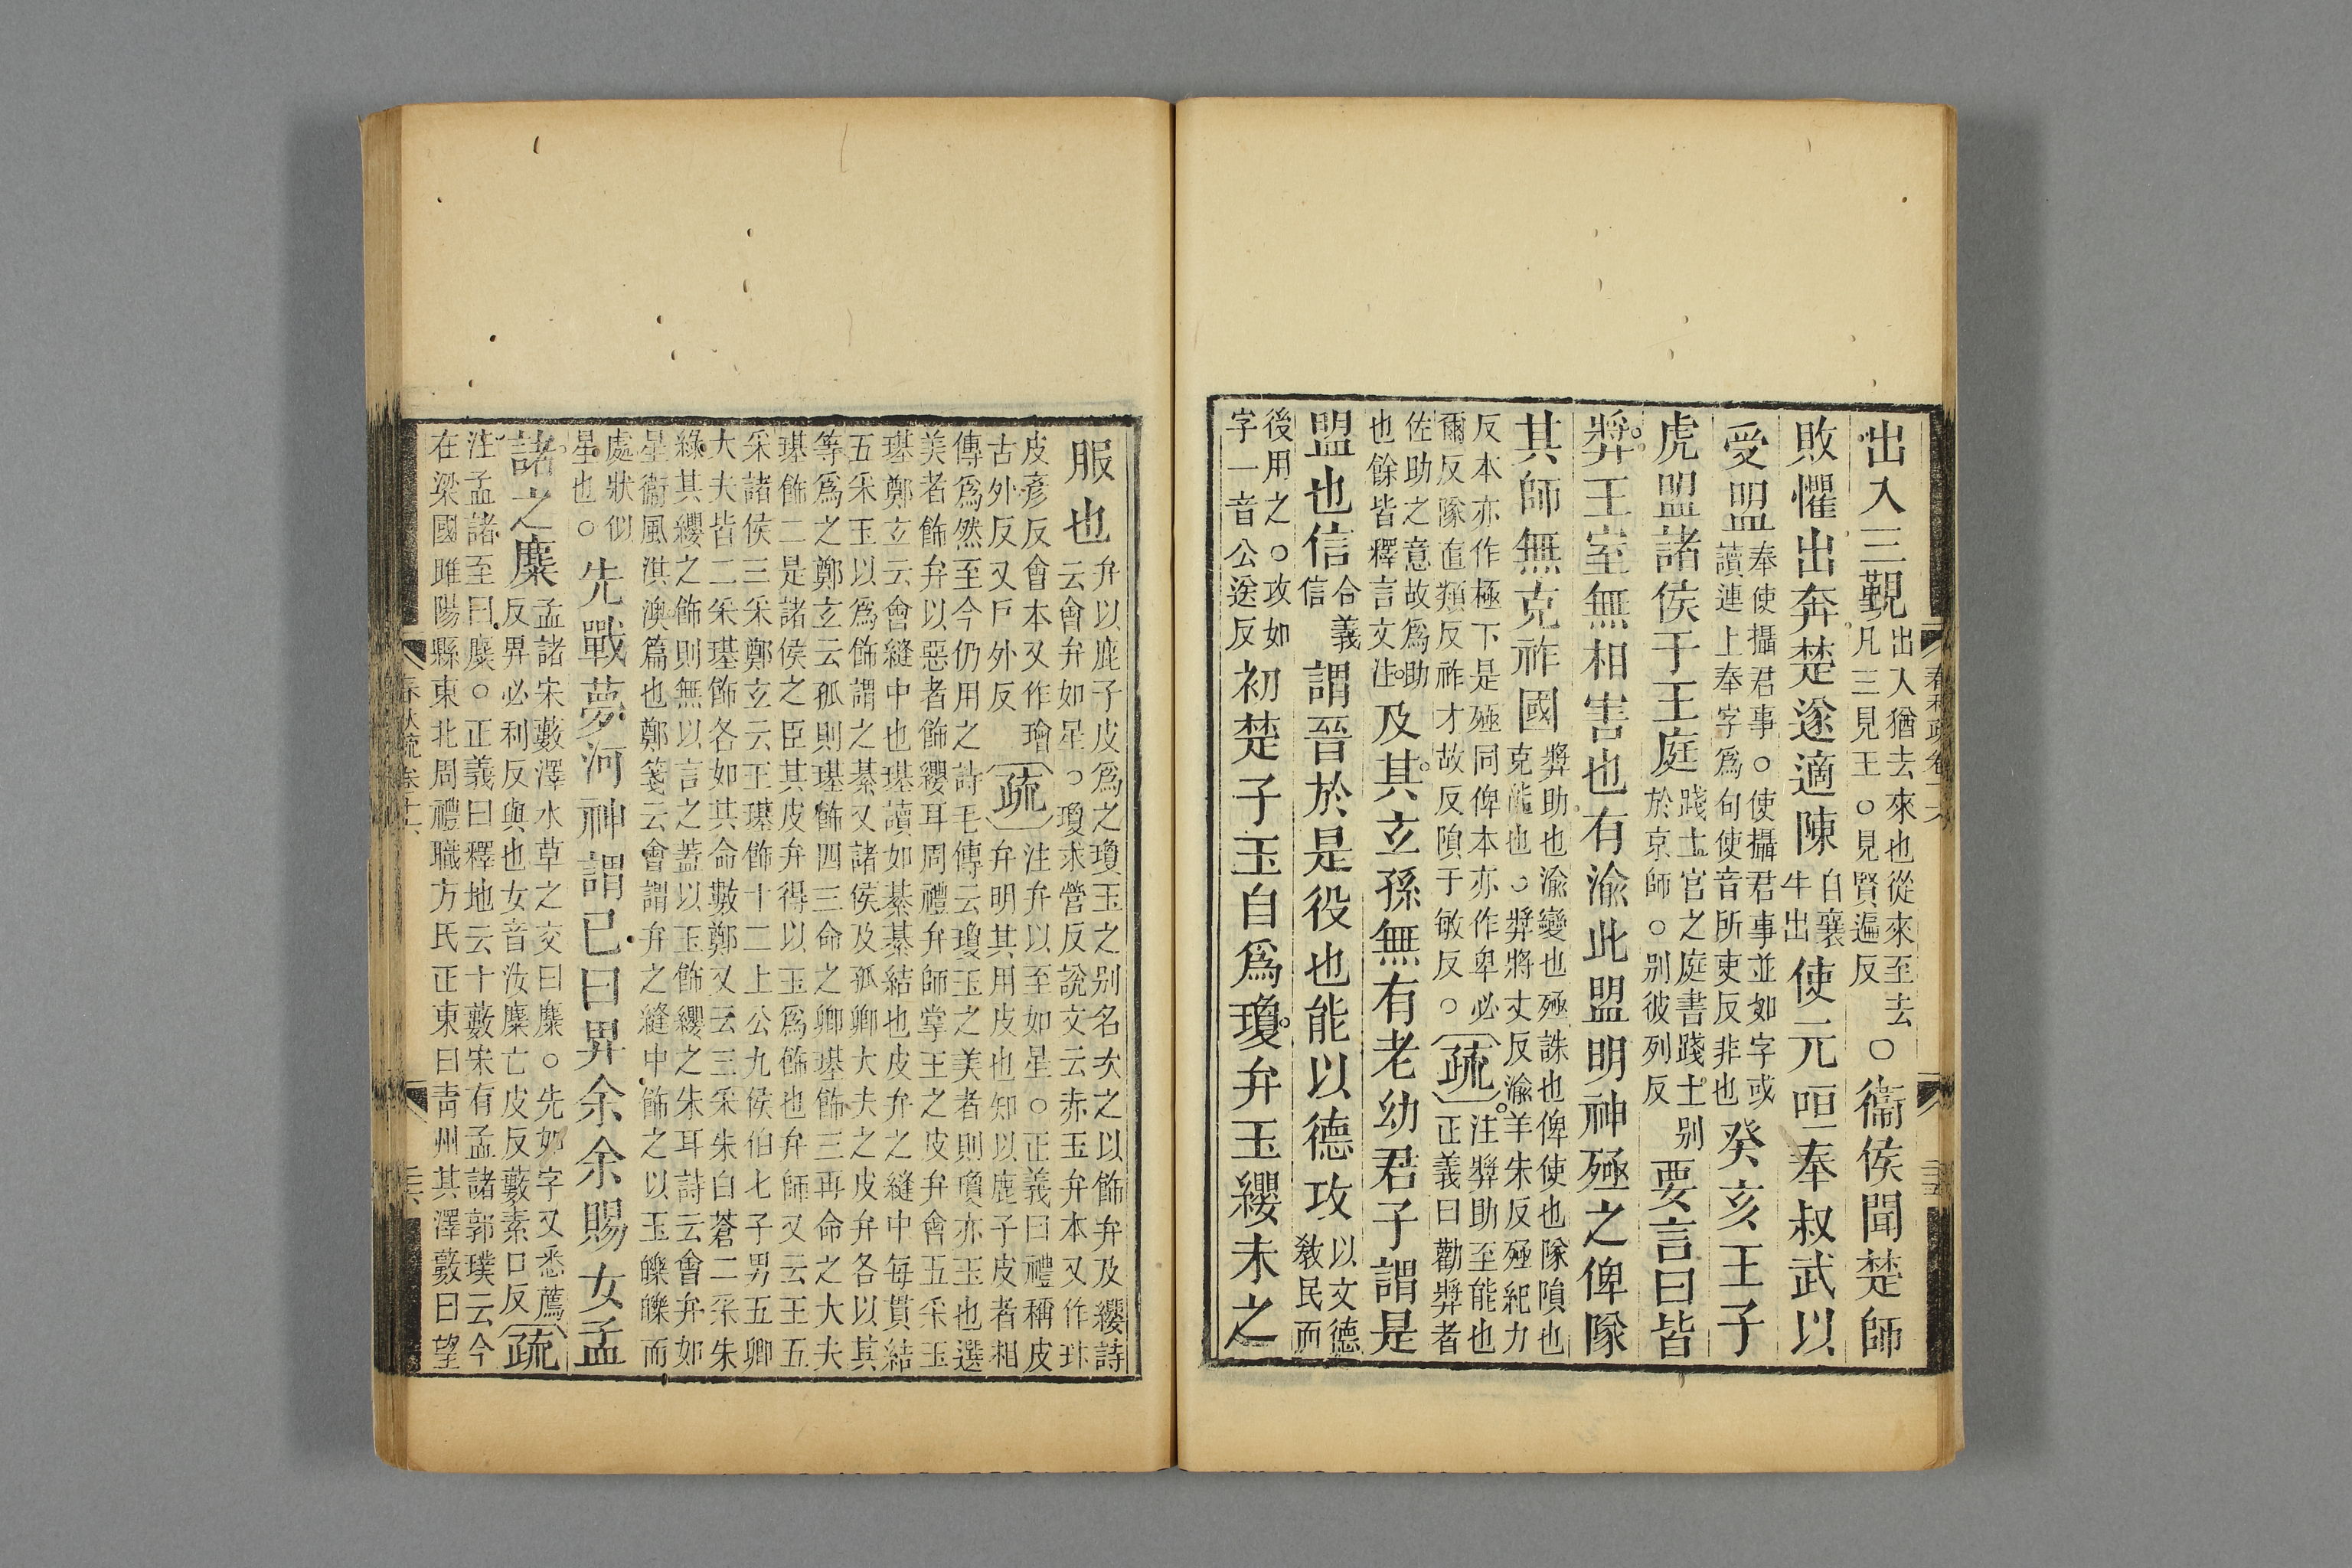 出入三覲出入猶去來也從來至去凡三見王○見賢遍反○衞侯聞楚師
敗懼出奔楚遂適陳自襄牛出使元咺奉叔武以
受盟奉使攝君事○使攝君事並如字或讀連上奉字爲句使音所吏反非也癸亥王子
虎盟諸侯于王庭踐土宫之庭書踐土别於京師○别彼列反要言曰皆
奬王室無相害也有渝此盟明神殛之俾隊
其師無克祚國奬助也渝變也殛誅也俾使也隊隕也克能也○奬將丈反渝羊朱反殛紀力
反本亦作極下是殛同俾本亦作卑必爾反隊直類反祚才故反隕于敏反○疏注奬助至能也正義曰勸奬者
佐助之意故爲助也餘皆釋言文注及其玄孫無有老幼君子謂是
盟也信合義信謂晉於是役也能以德攻以文德敎民而
後用之○攻如字一音公送反初楚子玉自爲瓊弁玉纓未之
服也弁以鹿子皮爲之瓊玉之别名次之以飾弁及纓詩云會弁如星○瓊求營反說文云赤玉弁本又作玣
皮彥反會本又作璯古外反又戶外反疏注弁以至如星○正義曰禮稱皮弁明其用皮也知以鹿子皮者相
傳爲然至今仍用之詩毛傳云瓊玉之美者則瓊亦玉也選
美者飾弁以惡者飾纓耳周禮弁師掌王之皮弁會五采玉
璂鄭玄云會縫中也璂讀如綦綦結也皮弁之縫中每貫結
五采玉以爲飾謂之綦又諸侯及孤卿大夫之皮弁各以其
等爲之鄭玄云孤則璂飾四三命之卿璂飾三再命之大夫
璂飾二是諸侯之臣其皮弁得以玉爲飾也弁師又云王五
采諸侯三采鄭玄云王璂飾十二上公九侯伯七子男五卿
大夫皆二采璂飾各如其命數鄭又云三采朱白蒼二采朱
綠其纓之飾則無以言之蓋以玉飾纓之朱耳詩云會弁如
星衞風淇澳篇也鄭箋云會謂弁之縫中飾之以玉皪皪而
處狀似星也○先戰夢河神謂己曰畀余余賜女孟
諸之麋孟諸宋藪澤水草之交曰麋○先如字又悉薦反畀必利反與也女音汝麋亡皮反藪素口反疏
注孟諸至曰麋○正義曰釋地云十藪宋有孟諸郭璞云今
在梁國睢陽縣東北周禮職方氏正東曰靑州其澤藪曰望